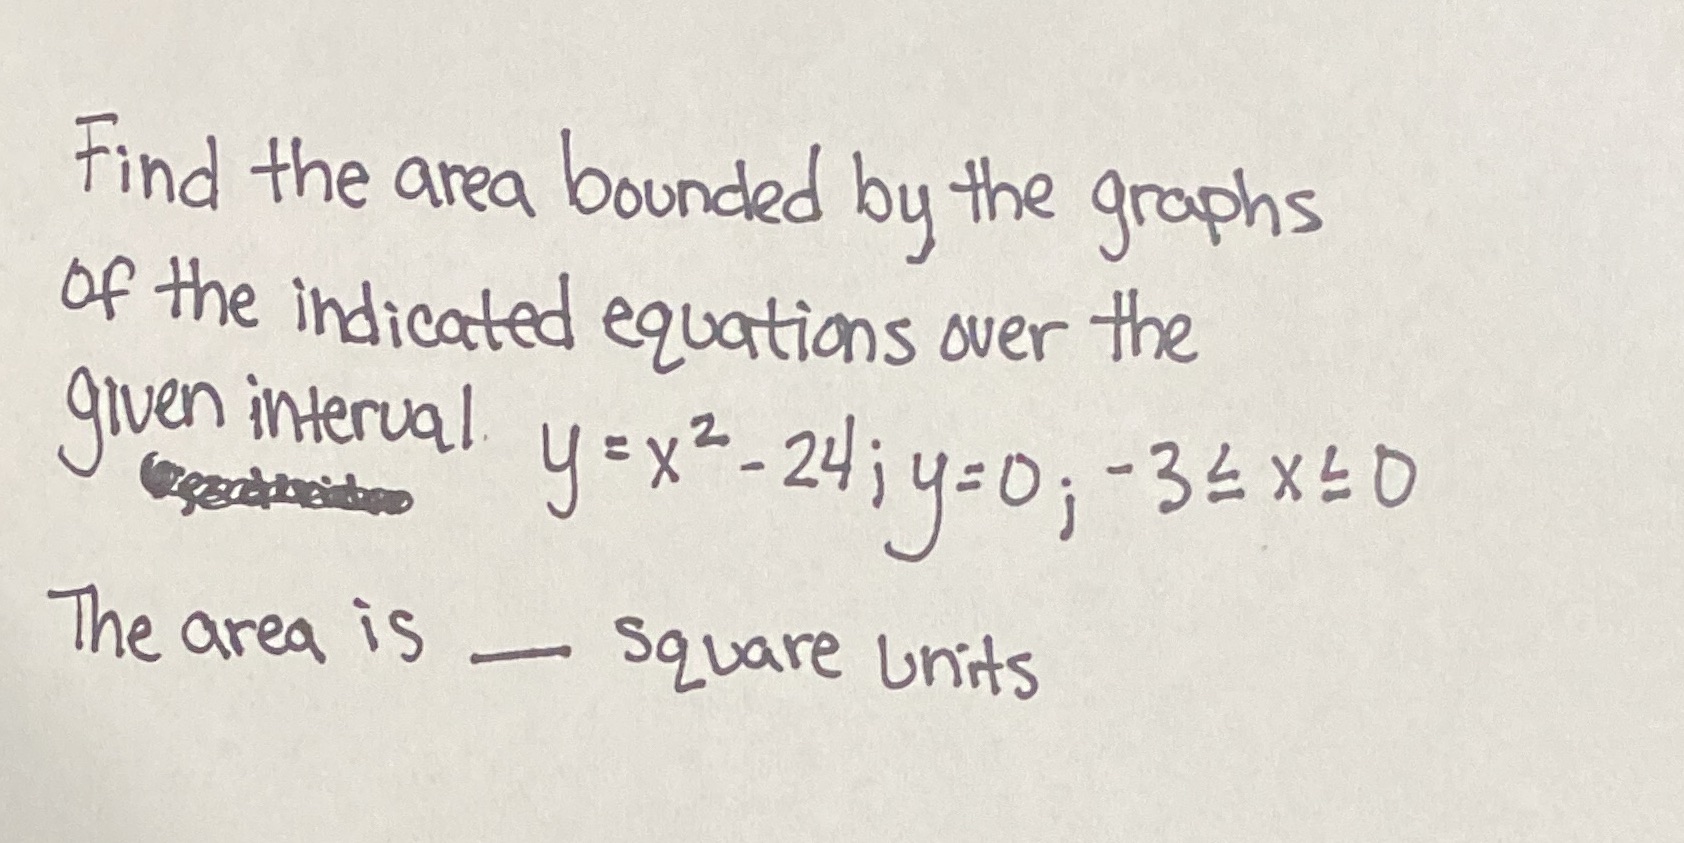 Find the area bounded by the graphs
of the indicated equations over the
given interval. y = x² - 24; y = 0; -3 ≤ x ≤ 0
The area is __ square units